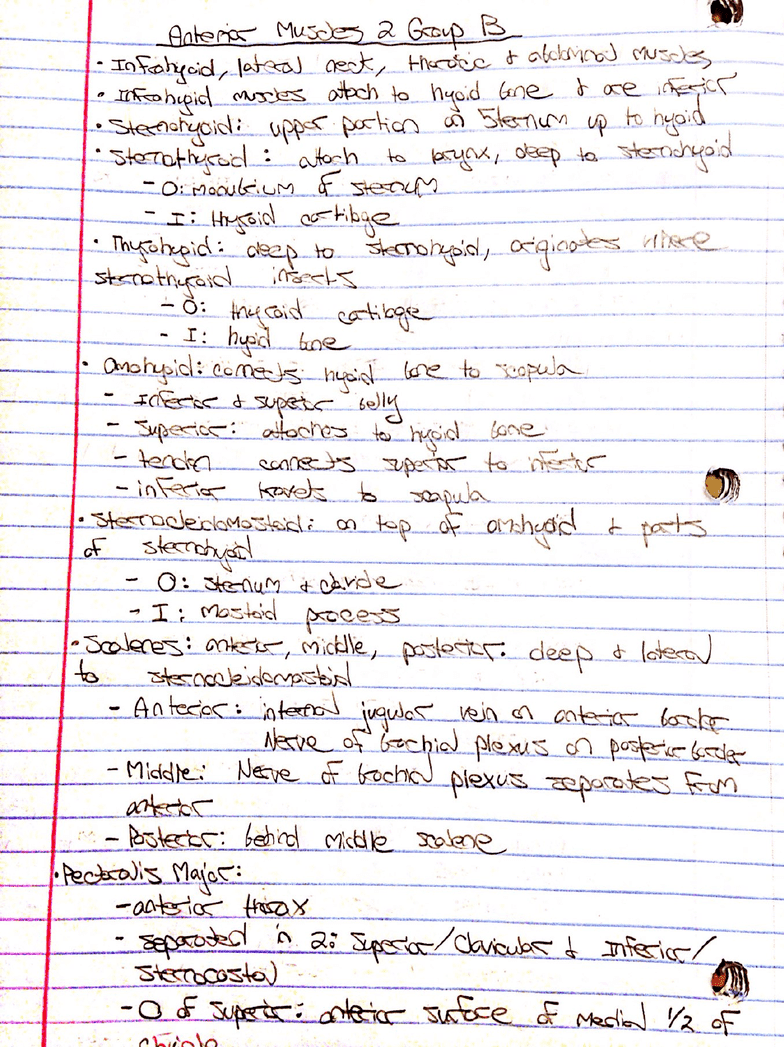 Anterior Muscles 2 Group B
• Infrahyoid, lateral neck, thoracic & abdominal muscles
• Infrahyoid muscles attach to hyoid bone & are inferior
• Sternohyoid: upper portion on Sternum up to hyoid
• Sternothyroid: attach to larynx, deep to sternohyoid
- O: manubrium of sternum
- I: thyroid cartilage
• Thyrohyoid: deep to sternohyoid, originates where
sternothyroid inserts
- O: thyroid cartilage
- I: hyoid bone
• Omohyoid: connects hyoid bone to scapula
- Inferior & superior belly
- Superior: attaches to hyoid bone
- tendon connects superior to inferior
- inferior travels to scapula
• Sternocleidomastoid: on top of omohyoid & parts
of sternohyoid
- O: sternum & clavicle
- I: Mastoid process
• Scalenes: anterior, middle, posterior: deep & lateral
to sternocleidomastoid
- Anterior: internal jugular vein on anterior border
Nerve of brachial plexus on posterior border
- Middle: Nerve of brachial plexus separates from
anterior
- Posterior: behind middle scalene
• Pectoralis Major:
- anterior thorax
- separated in 2: Superior/Clavicular & Inferior/
Sternocostal
- O of Superior: anterior surface of medial 1/2 of
clavicle